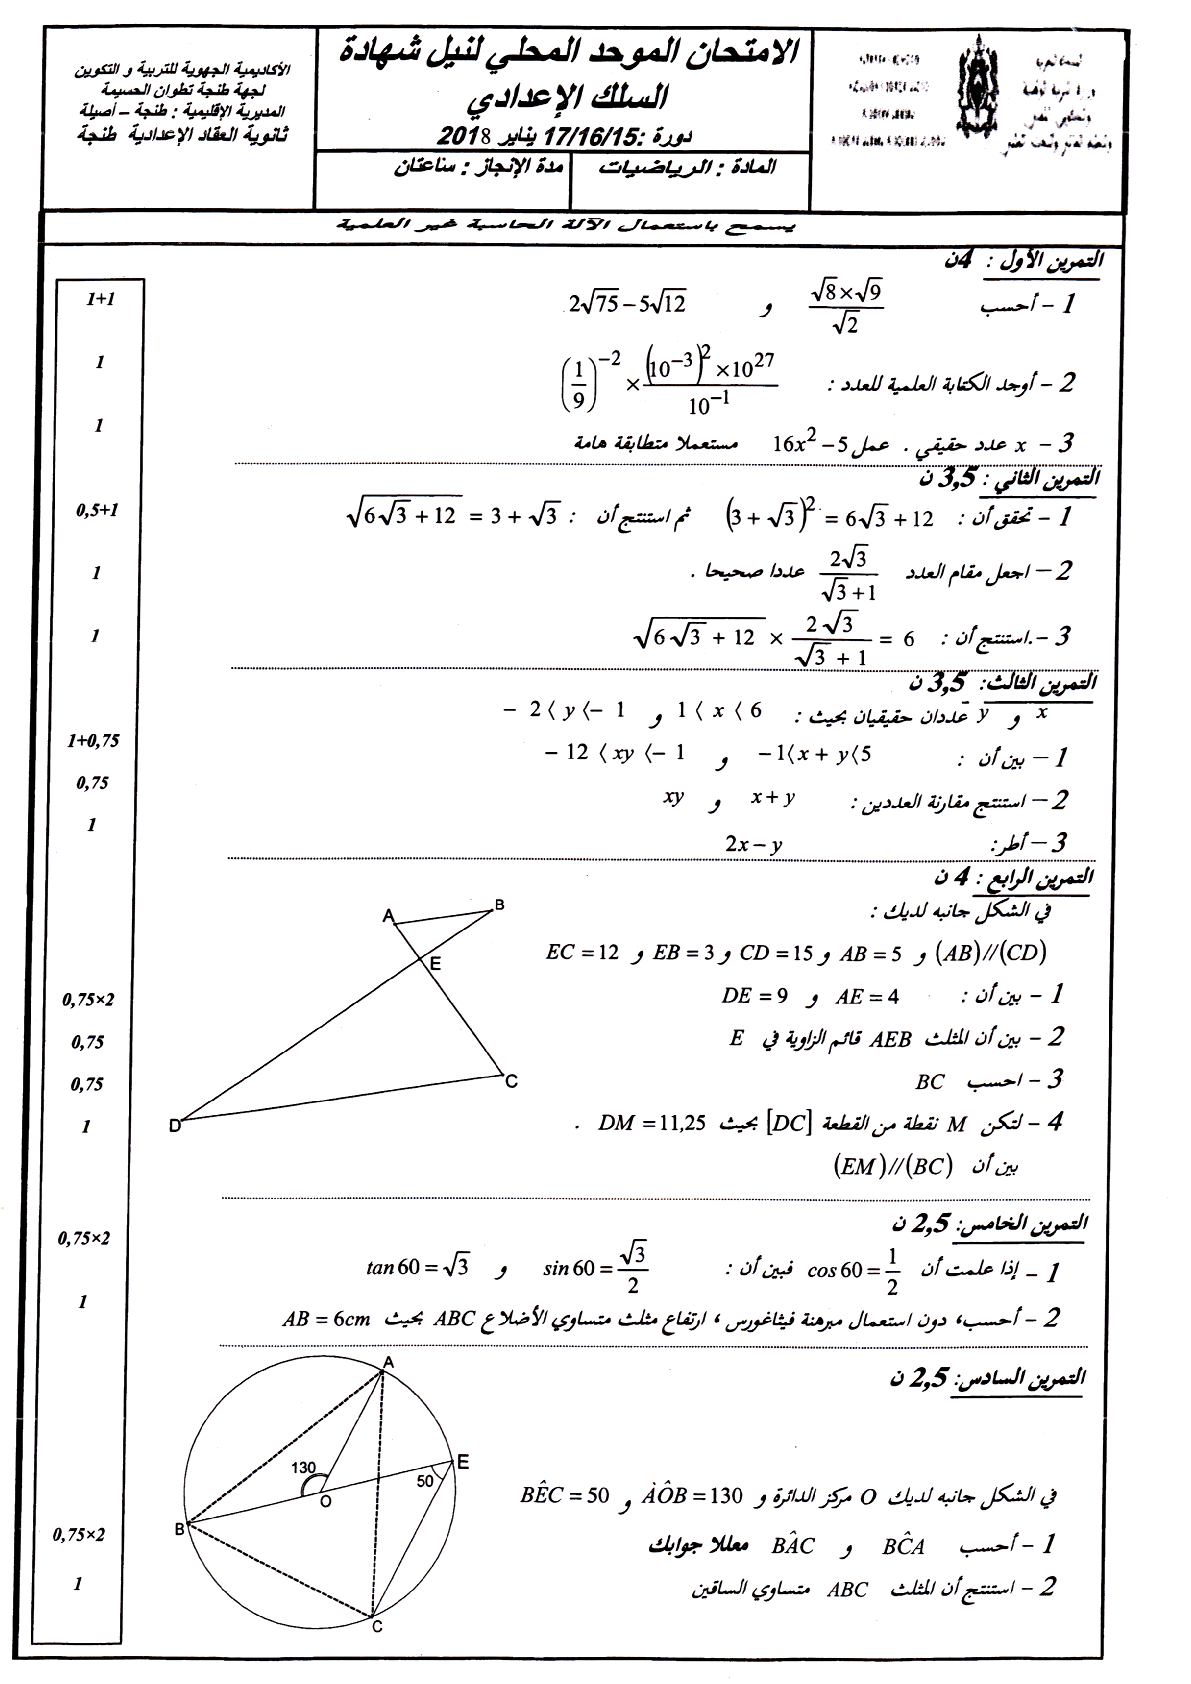 الامتحان الموحد المحلي لنيل شهادة
السلك الإعدادي
دورة :17/16/15 يناير 2018
المادة : الرياضيات
مدة الإنجاز : ساعتان
الأكاديمية الجهوية للتربية و التكوين
لجهة طنجة تطوان الحسيمة
المديرية الإقليمية : طنجة – أصيلة
ثانوية العقاد الإعدادية طنجة
يسمح باستعمال الآلة الحاسبة غير العلمية
التمرين الأول : 4ن
1 – أحسب (√8×√9)/√2 و 2√75−5√12
1+1
2 – أوجد الكتابة العلمية للعدد : (1/9)^−2 × ((10^−3)^2 × 10^27)/10^−1
1
3 – x عدد حقيقي . عمل 16x² −5 مستعملا متطابقة هامة
1
التمرين الثاني : 3,5 ن
1 – تحقق أن : (3+√3)² = 6√3+12 ثم استنتج أن : √(6√3+12) = 3+√3
0,5+1
2 – اجعل مقام العدد 2√3/(√3+1) عددا صحيحا .
1
3 –.استنتج أن : √(6√3 + 12) × 2√3/(√3 + 1) = 6
1
التمرين الثالث: 3,5 ن
x و y عددان حقيقيان بحيث : 1⟨ x ⟨ 6 و − 2⟨ y ⟨− 1
1 – بين أن : −1⟨x + y⟨5 و − 12 ⟨ xy ⟨− 1
1+0,75
2 – استنتج مقارنة العددين : x+ y و xy
0,75
3 – أطر: 2x− y
1
التمرين الرابع : 4 ن
في الشكل جانبه لديك :
(AB)//(CD) و AB = 5 و CD =15 و EB = 3 و EC =12
1 – بين أن : AE = 4 و DE = 9
0,75×2
2 – بين أن المثلث AEB قائم الزاوية في E
0,75
3 – احسب BC
0,75
4 – لتكن M نقطة من القطعة [DC] بحيث DM =11,25 .
1
بين أن (EM)//(BC)
A
B
E
C
D
التمرين الخامس: 2,5 ن
1 – إذا علمت أن cos60=1/2 فبين أن : sin60=√3/2 و tan60=√3
0,75×2
2 – أحسب، دون استعمال مبرهنة فيثاغورس ، ارتفاع مثلث متساوي الأضلاع ABC بحيث AB = 6cm
1
التمرين السادس: 2,5 ن
في الشكل جانبه لديك O مركز الدائرة و AÔB =130 و BÊC = 50
1 – أحسب BĈA و BÂC معللا جوابك
0,75×2
2 – استنتج أن المثلث ABC متساوي الساقين
1
A
E
130
50
O
B
C